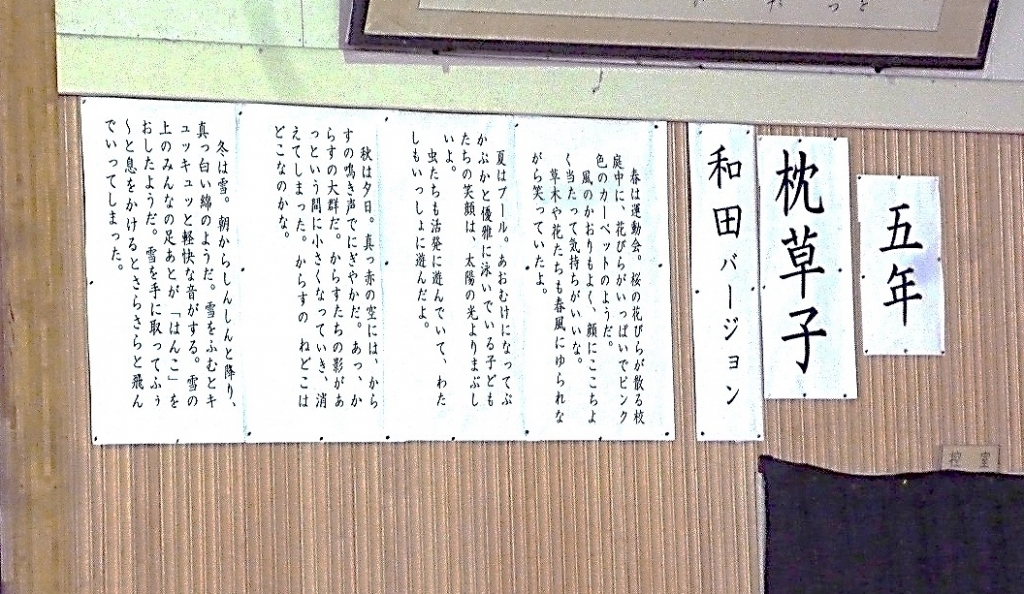 五年
枕草子
和田バージョン
春は運動会。桜の花びらが散る校
庭中に、花びらがいっぱいでピンク
色のカーペットのようだ。
風のかおりもよく、顔にここちよ
く当たって気持ちがいいな。
草木や花たちも春風にゆられな
がら笑っていたよ。
夏はプール。あおむけになってぷ
かぷかと優雅に泳いでいる子ども
たちの笑顔は、太陽の光よりまぶし
いよ。
虫たちも活発に遊んでいて、わた
しもいっしょに遊んだよ。
秋は夕日。真っ赤の空には、から
すの鳴き声でにぎやかだ。あっ、か
らすの大群だ。からすたちの影があ
っという間に小さくなっていき、消
えてしまった。からすの ねどこは
どこなのかな。
冬は雪。朝からしんしんと降り、
真っ白い綿のようだ。雪をふむとキ
ュッキュッと軽快な音がする。雪の
上のみんなの足あとが「はんこ」を
おしたようだ。雪を手に取ってふぅ
〜と息をかけるとさらさらと飛ん
でいってしまった。
控室